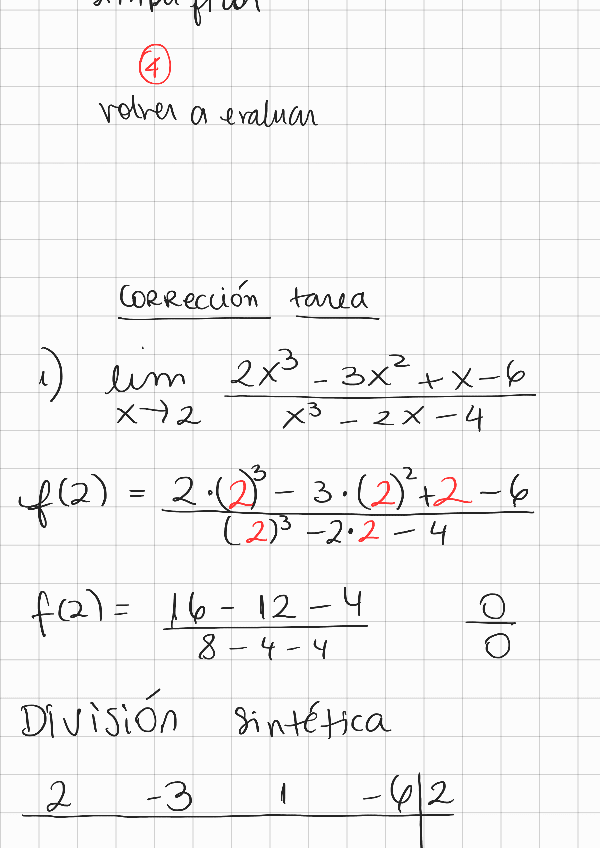 simplificar
④
volver a evaluar
Corrección tarea
i) lim x→2 (2x³ - 3x² + x - 6) / (x³ - 2x - 4)
f(2) = (2·(2)³ - 3·(2)² + 2 - 6) / ((2)³ - 2·2 - 4)
f(2) = (16 - 12 - 4) / (8 - 4 - 4) 0/0
División sintética
2 -3 1 -6 | 2